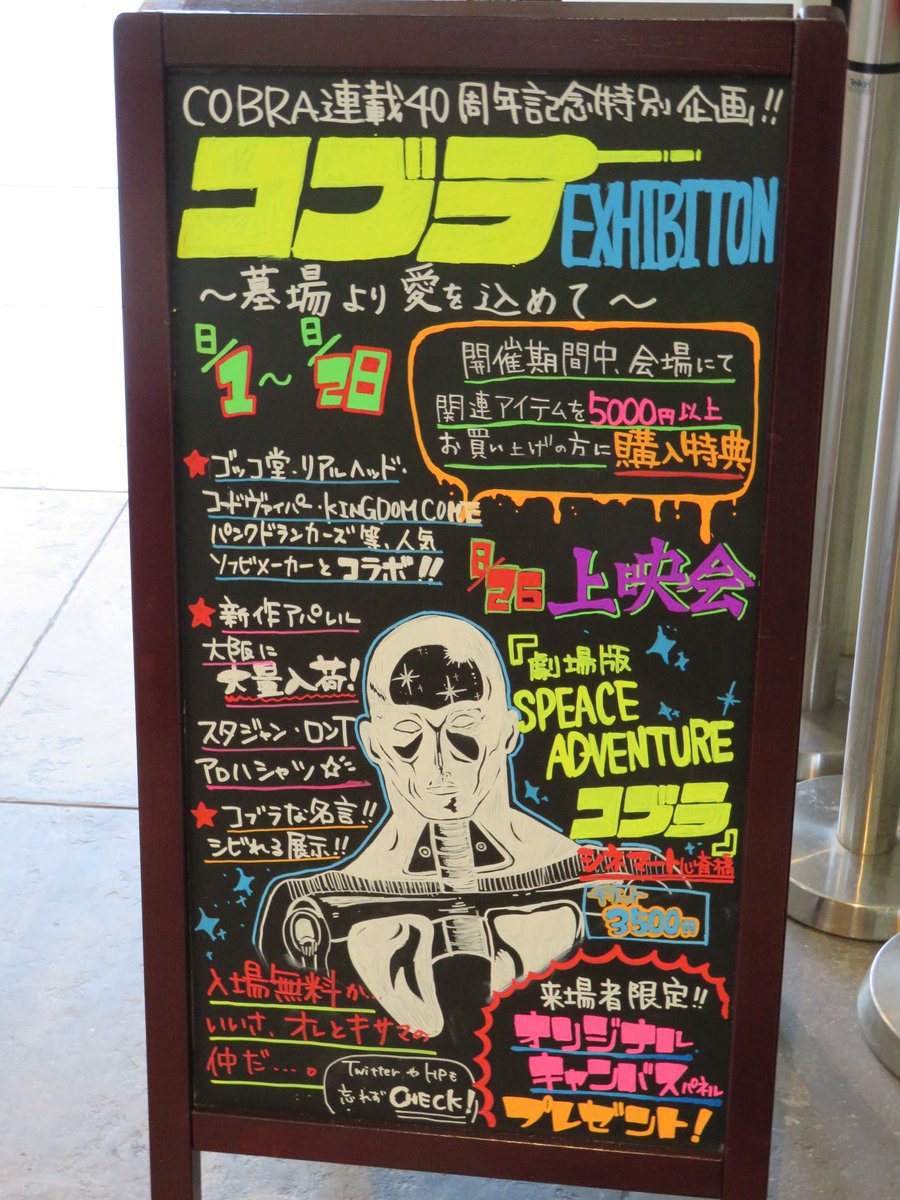 COBRA連載40周年記念特別企画!!
コブラ
EXHIBITON
～墓場より愛を込めて～
8/1～8/28
開催期間中、会場にて
関連アイテムを5000円以上
お買い上げの方に購入特典
★ゴッコ堂・リアルヘッド・
コードヴァイパー・KINGDOM COME
パンクドランカーズ等、人気
ソフビメーカーとコラボ!!
8/26 上映会
★新作アパレル
大阪に
大量入荷!
スタジャン・ロンT
アロハシャツ☆
★コブラな名言!!
シビれる展示!!
『劇場版
SPEACE
ADVENTURE
コブラ』
シネマート心斎橋
3500円
入場無料か…
いいさ、オレとキサマの
仲だ…。
TwitterやHPを
忘れずCHECK!
来場者限定!!
オリジナル
キャンバスパネル
プレゼント!